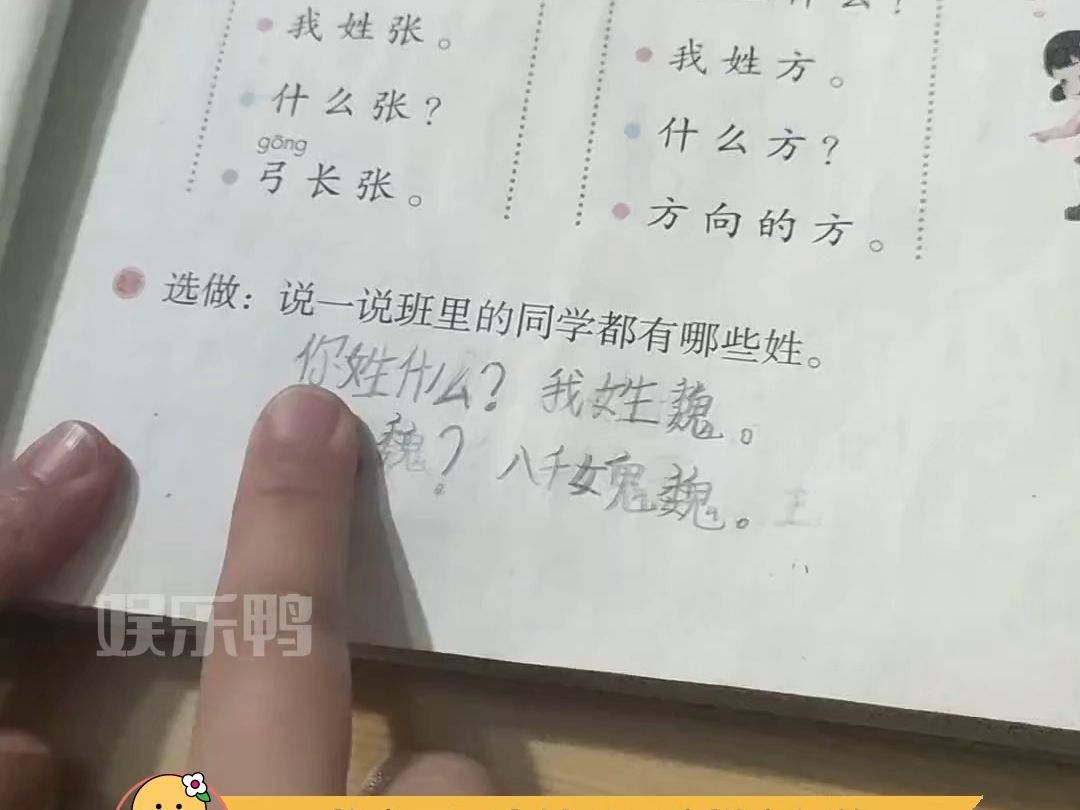 我姓张。
什么张？
gōng
弓长张。
我姓方。
什么方？
方向的方。
选做：说一说班里的同学都有哪些姓。
你姓什么？我姓魏。
魏？八千女鬼魏。
娱乐鸭